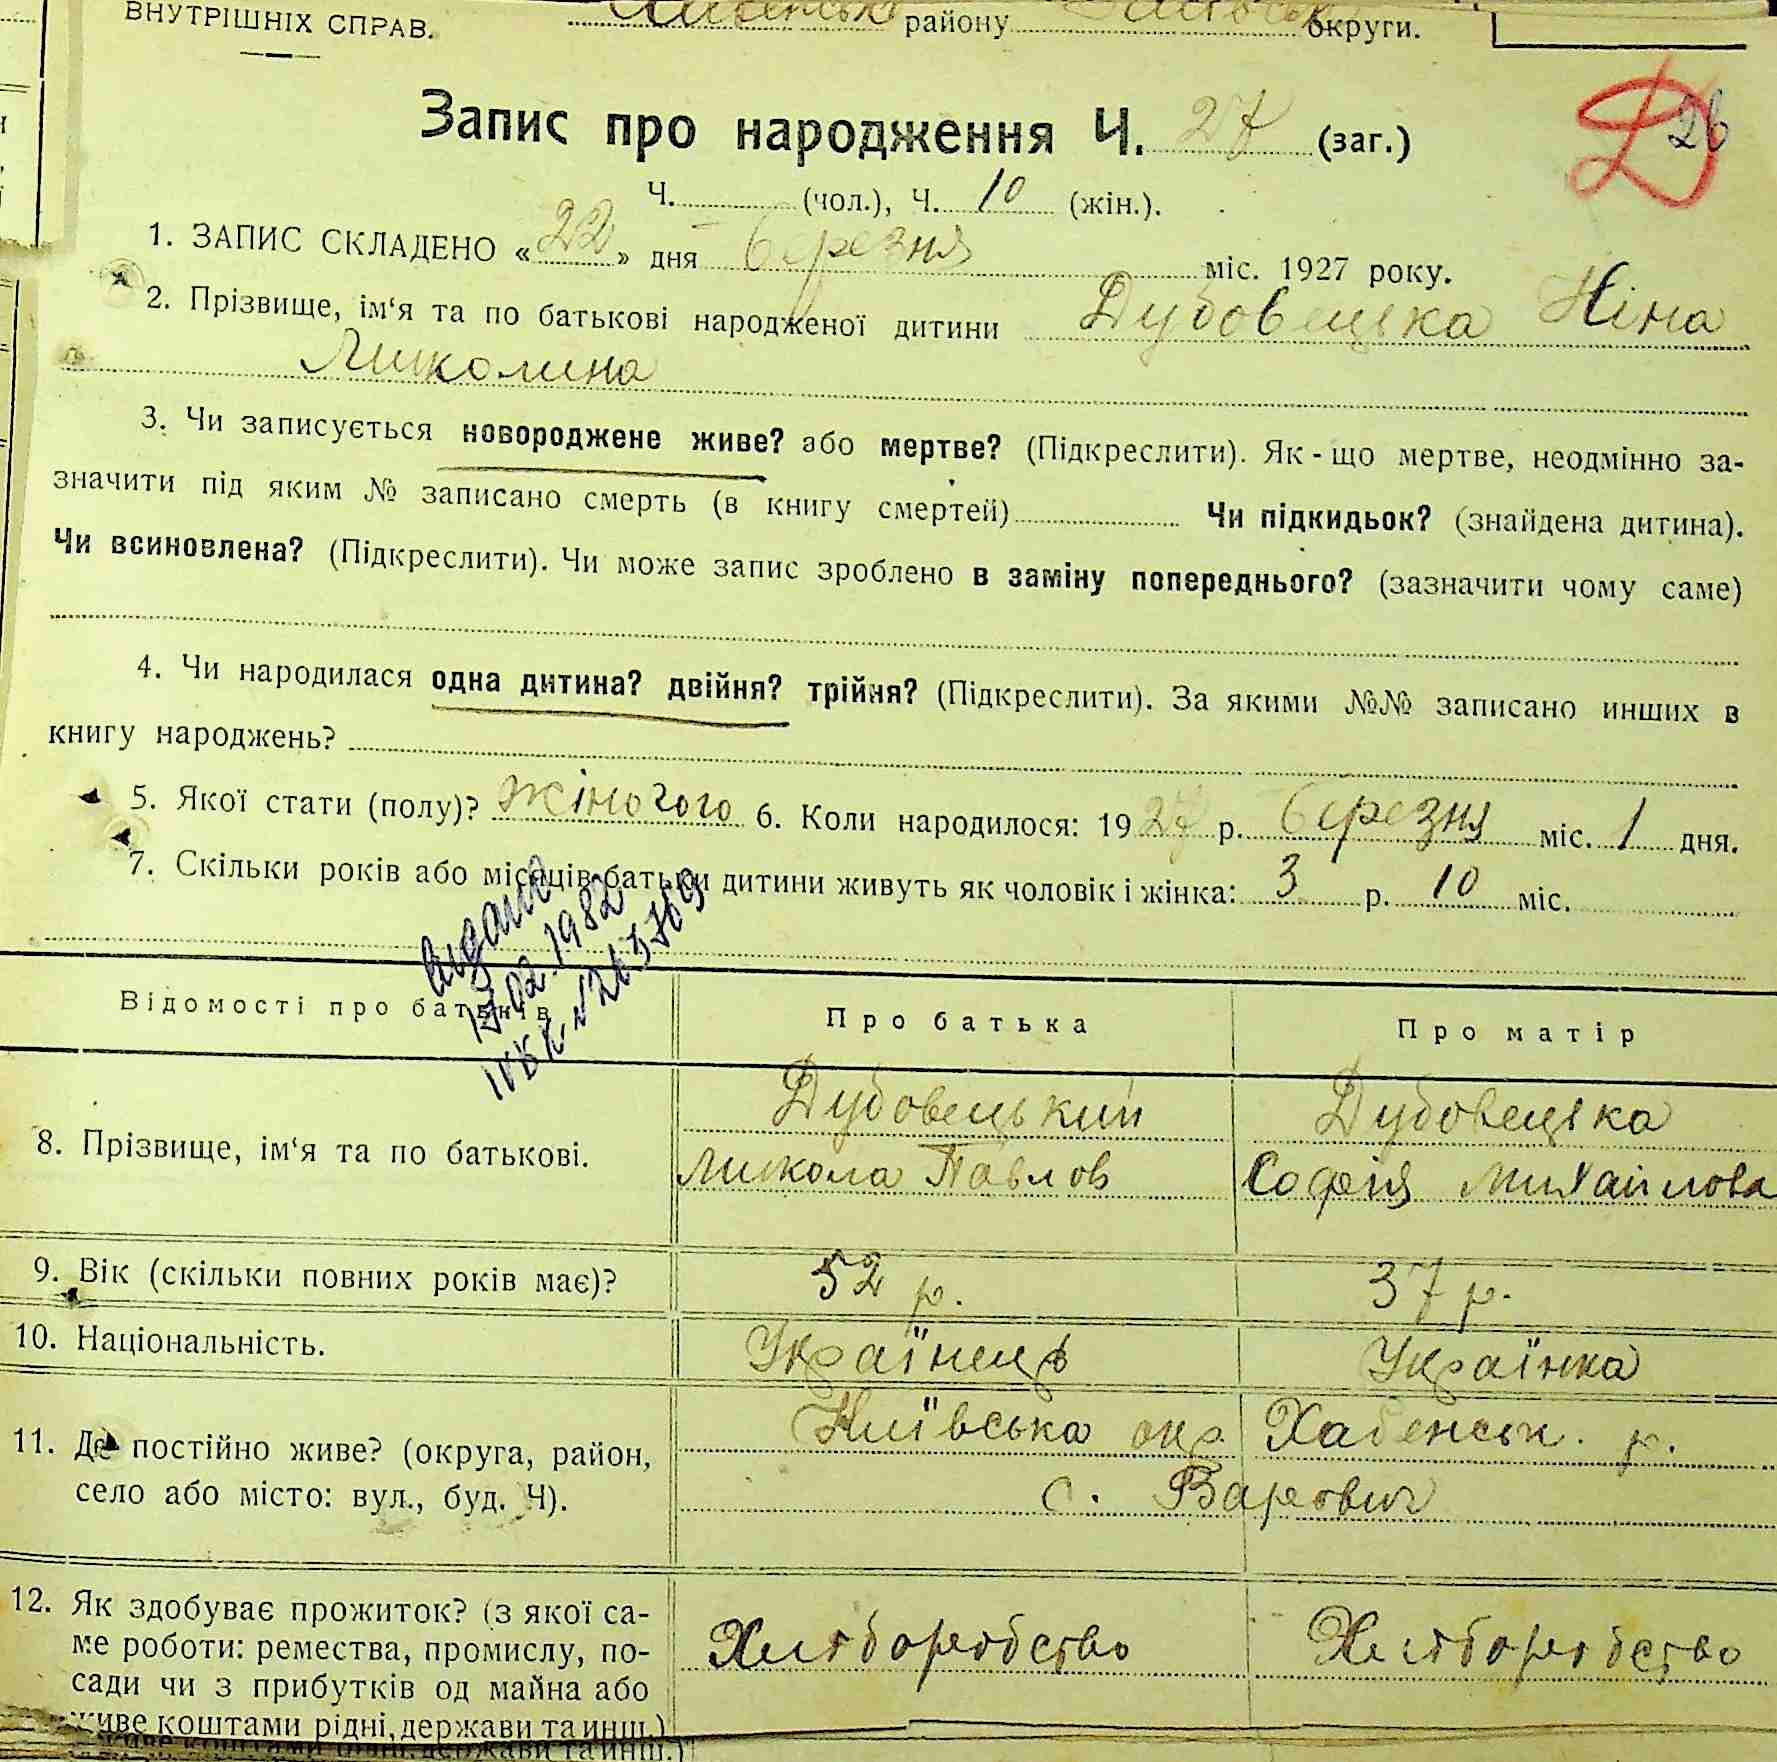 ВНУТРІШНІХ СПРАВ.
району округи.
Запис про народження Ч. 27 (заг.)
26
Ч. (чол.), Ч. 10 (жін.).
1. ЗАПИС СКЛАДЕНО «22» дня березня міс. 1927 року.
2. Прізвище, ім‘я та по батькові народженої дитини Дубовецька Ніна
Миколина
3. Чи записується новороджене живе? або мертве? (Підкреслити). Як-що мертве, неодмінно за-
значити під яким № записано смерть (в книгу смертей) Чи підкидьок? (знайдена дитина).
Чи всиновлена? (Підкреслити). Чи може запис зроблено в заміну попереднього? (зазначити чому саме)
4. Чи народилася одна дитина? двійня? трійня? (Підкреслити). За якими №№ записано инших в
книгу народжень?
5. Якої стати (полу)? жіночого 6. Коли народилося: 1927 р. березня міс. 1 дня.
7. Скільки років або місяців батьки дитини живуть як чоловік і жінка: 3 р. 10 міс.
видано
02.1982
Відомості про батьків Про батька Про матір
Дубовецький Дубовецька
8. Прізвище, ім‘я та по батькові. Микола Павлов Софія Михайлова
9. Вік (скільки повних років має)? 52 р. 37 р.
10. Національність. Українець Українка
11. Де постійно живе? (округа, район, Київська окр. Хабенськ. р.
село або місто: вул., буд. Ч). с. Варовичі
12. Як здобуває прожиток? (з якої са-
ме роботи: ремества, промислу, по- Хліборобство Хліборобство
сади чи з прибутків од майна або
живе коштами рідні, держави та инш.)